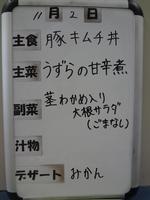 11月2日
主食 豚キムチ丼
主菜 うずらの甘辛煮
副菜 茎わかめ入り
大根サラダ
(ごまなし)
汁物
デザート みかん